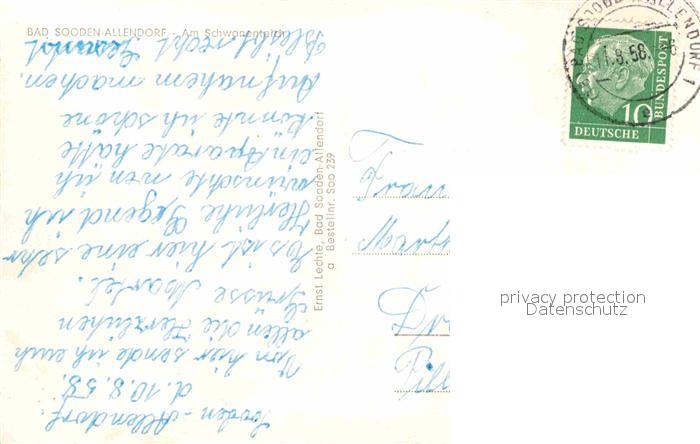 BAD SOODEN-ALLENDORF Am Schwanenteich
Sooden-Allendorf.
d. 10.8.58.
Von hier sende ich euch
allen die Herzlichen
Grüsse Martel.
Es ist hier eine sehr
Herliche Gegend ich
wünschte wen ich
ein Aparate hätte
könnte ich schöne
Aufnahem machen.
Bleibt recht Gesund
Ernst Lechte, Bad Sooden-Allendorf
a Bestellnr. Soo 239
BAD SOODEN-ALLENDORF 1
11.8.58
10
DEUTSCHE
BUNDESPOST
privacy protection
Datenschutz